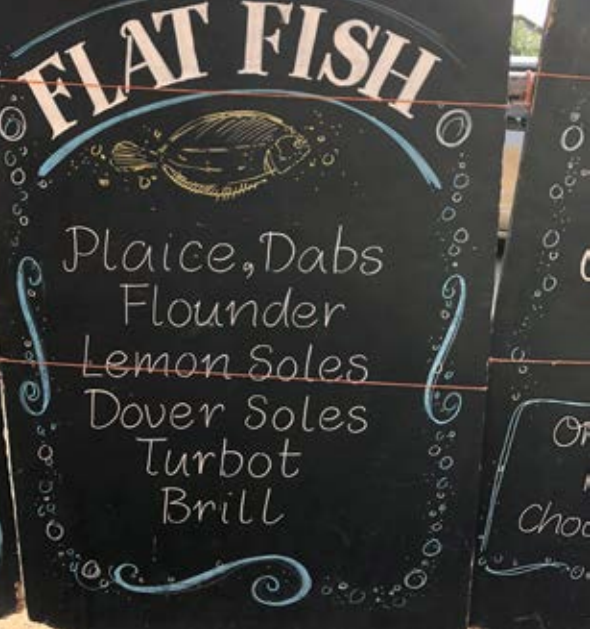 FLAT FISH
Plaice, Dabs
Flounder
Lemon Soles
Dover Soles
Turbot
Brill